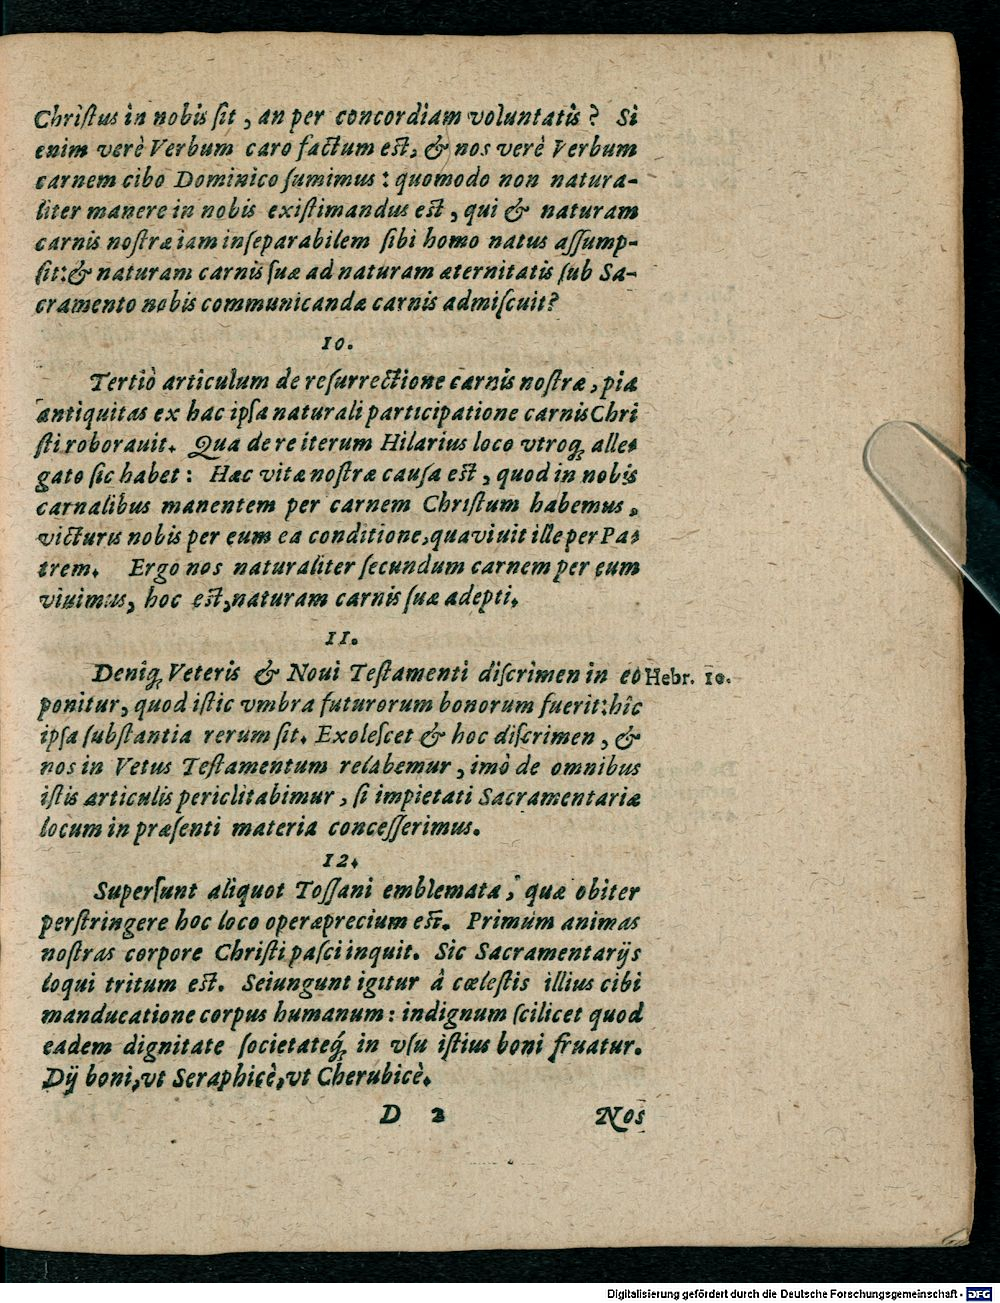 Chriſtus in nobis ſit, an per concordiam voluntatis? Si
enim verè Verbum caro factum est, & nos verè Verbum
carnem cibo Dominico ſumimus: quomodo non natura-
liter manere in nobis exiſtimandus est, qui & naturam
carnis noſtræ iam inſeparabilem ſibi homo natus aſſump-
ſit: & naturam carnis ſuæ ad naturam æternitatis ſub Sa-
cramento nobis communicandæ carnis admiſcuit?
10.
Tertiò articulum de reſurrectione carnis noſtræ, pia
antiquitas ex hac ipſa naturali participatione carnis Chri
ſti roborauit. Qua de re iterum Hilarius loco vtroq; alle-
gato ſic habet: Hæc vitæ noſtræ cauſa est, quod in nobis
carnalibus manentem per carnem Chriſtum habemus,
victuris nobis per eum ea conditione, qua viuit ille per Pa-
trem. Ergo nos naturaliter ſecundum carnem per eum
viuimus, hoc est, naturam carnis ſuæ adepti.
11.
Deniq; Veteris & Noui Teſtamenti diſcrimen in eo Hebr. 10.
ponitur, quod iſtic vmbra futurorum bonorum fuerit: hîc
ipſa ſubſtantia rerum ſit. Exoleſcet & hoc diſcrimen, &
nos in Vetus Teſtamentum relabemur, imò de omnibus
iſtis articulis periclitabimur, ſi impietati Sacramentariæ
locum in præſenti materia conceſſerimus.
12.
Superſunt aliquot Toſſani emblemata, quæ obiter
perſtringere hoc loco operæprecium est. Primùm animas
noſtras corpore Chriſti paſci inquit. Sic Sacramentarijs
loqui tritum est. Seiungunt igitur à cœleſtis illius cibi
manducatione corpus humanum: indignum ſcilicet quod
eadem dignitate ſocietateq́; in vſu iſtius boni fruatur.
Dij boni, vt Seraphicè, vt Cherubicè.
D 2 Nos
Digitalisierung gefördert durch die Deutsche Forschungsgemeinschaft - DFG